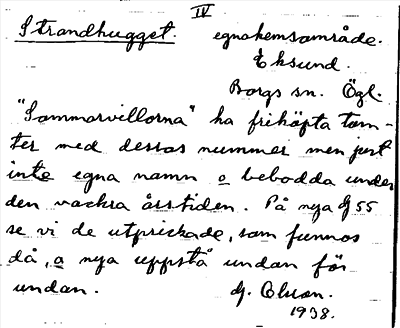 IV
Strandhugget. egnahemsområde.
Eksund.
Borgs sn. Ögl.
"Sommarvillorna" ha friköpta tom-
ter med dessas nummer men just
inte egna namn o bebodda under
den vackra årstiden. På nya G 55
se vi de utprickade, som funnos
då, o nya uppstå undan för
undan. G.
1938.